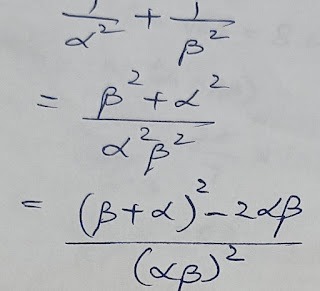 1/α² + 1/β²
= (β² + α²)/(α²β²)
= ((β + α)² − 2αβ)/(αβ)²